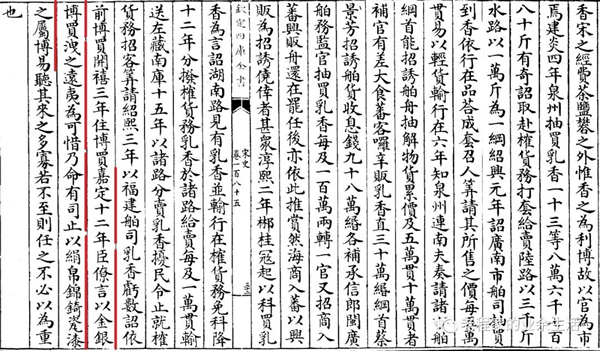 香宋之經費茶鹽礬之外惟香之為利博故以官為市
焉建炎四年泉州抽買乳香一十三等八萬六千七百
八十斤有奇詔取赴榷貨務打套給賣陸路以三千斤
水路以一萬斤為一綱紹興元年詔廣南市舶司抽買
到香依行在品答成套召人筭請其所售之價每五萬
貫易以輕貨輸行在六年知泉州連南夫奏請諸市舶
綱首能招誘舶舟抽解物貨累價及五萬貫十萬貫者
補官有差大食蕃客囉辛販乳香直三十萬緡綱首蔡
景芳招誘舶貨收息錢九十八萬緡各補承信郎閩廣
舶務監官抽買乳香每及一百萬兩轉一官又招商入
蕃興販舟還在罷任後亦依此推賞然海商入蕃以興
販為招誘僥倖者甚衆淳熙二年郴桂寇起以科買乳
欽定四庫全書
宋史
卷一百八十五
香為言詔湖南路見有乳香並輸行在榷貨務免科降
十二年分撥榷貨務乳香於諸路給賣每及一萬貫輸
送左藏南庫十五年以諸路分賣乳香擾民令止就榷
貨務招客筭請紹熙三年以福建舶司乳香虧數詔依
前博買開禧三年住博買嘉定十二年臣僚言以金銀
博買洩之遠夷為可惜乃命有司止以絹帛錦綺瓷漆
之屬博易聽其來之多寡若不至則任之不必以為重
也